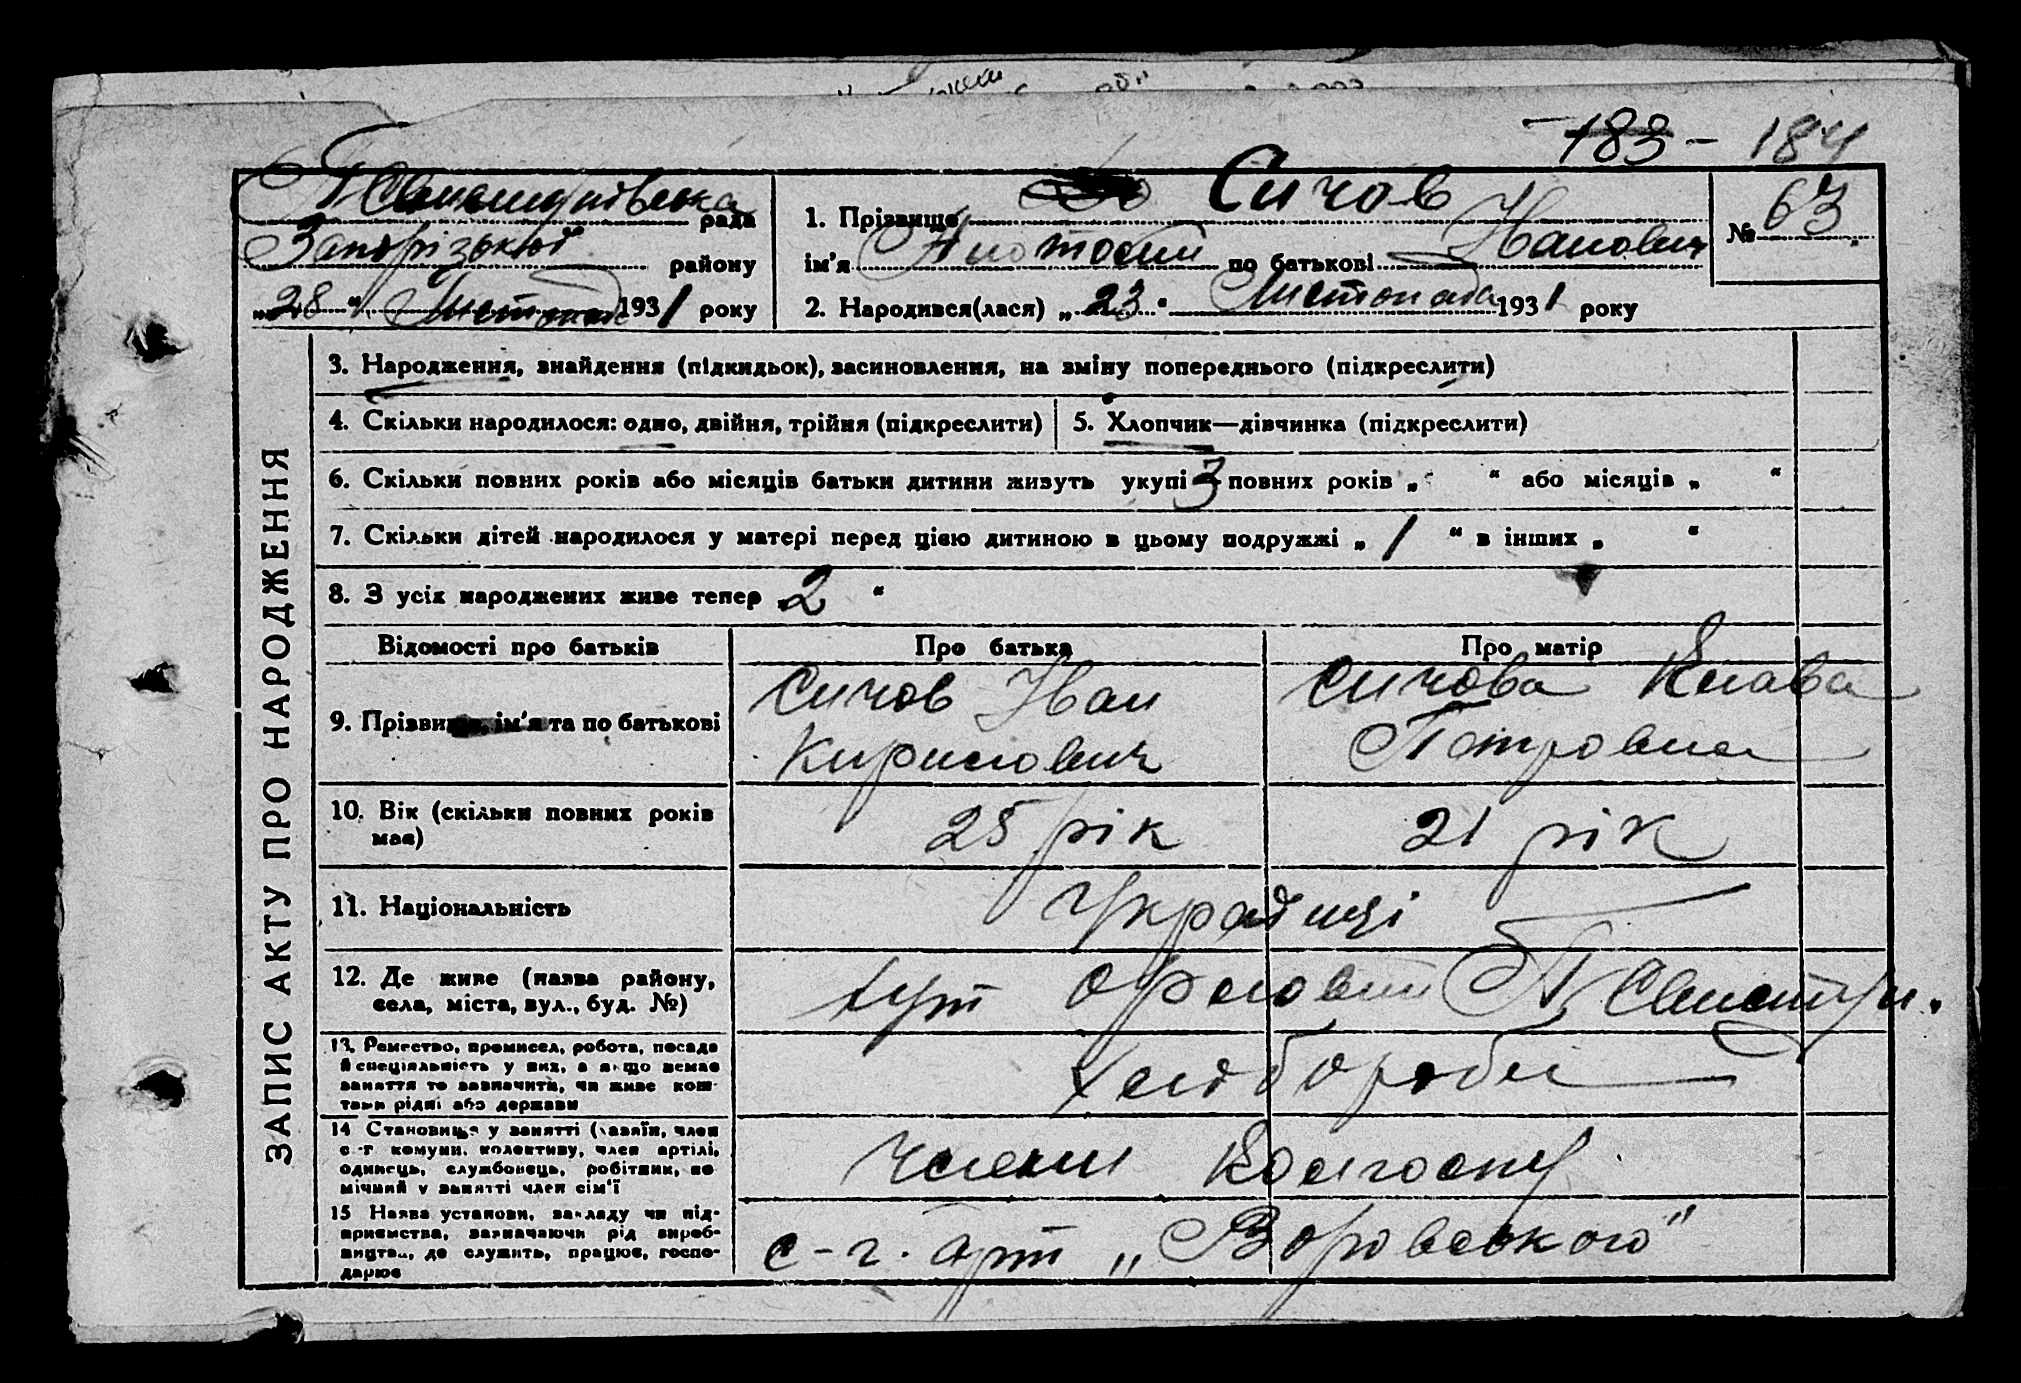 183 - 184
рада
Запорізької району
„28“ Листопада 1931 року
1. Прізвище Сичов
ім'я Анатолій по батькові Іванович
2. Народився(лася) „23“ Листопада 1931 року
№ 63
ЗАПИС АКТУ ПРО НАРОДЖЕННЯ
3. Народження, знайдення (підкидьок), засиновлення, на зміну попереднього (підкреслити)
4. Скільки народилося: одно, двійня, трійня (підкреслити)
5. Хлопчик—дівчинка (підкреслити)
6. Скільки повних років або місяців батьки дитини живуть укупі 3 повних років „ “ або місяців „ “
7. Скільки дітей народилося у матері перед цією дитиною в цьому подружжі „ 1 “ в інших „ “
8. З усіх народжених живе тепер 2 “
Відомості про батьків
Про батька
Про матір
9. Прізвище, ім'я та по батькові
Сичов Іван
Кирилович
Сичова Клава
Петровна
10. Вік (скільки повних років
має)
25 рік
21 рік
11. Національність
Українці
12. Де живе (назва району,
села, міста, вул., буд. №)
хут
13. Ремество, промисел, робота, посада
й спеціяльність у них, а якщо немає
заняття то зазначити, чи живе кош-
тами рідні або держави
Хлібороби
14 Становище у занятті (хазяїн, член
с.-г комуни, колективу, член артілі,
одинець, службовець, робітник, по
мічний у занятті член сім'ї
Члени Колгоспу
15 Назва установи, закладу чи під-
приємства, зазначаючи рід вироб-
ництва, де служить, працює, госпо-
дарює
с-г. арт „Воровського“